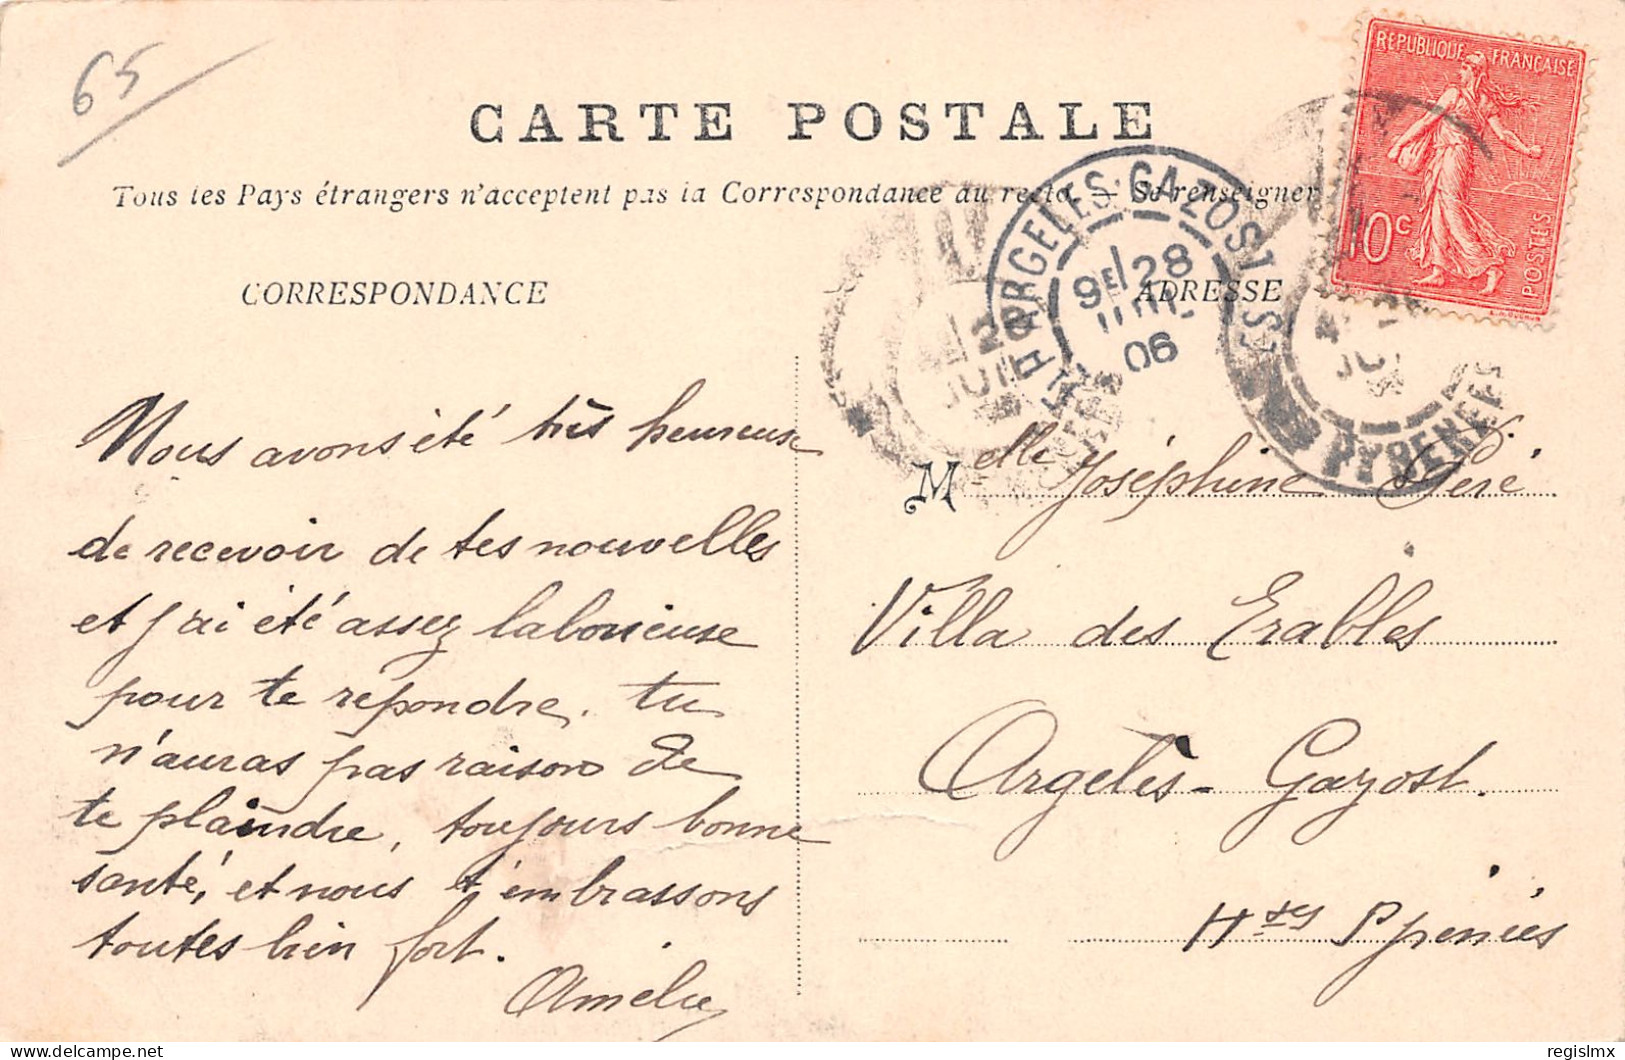 65
CARTE POSTALE
Tous les Pays étrangers n'acceptent pas la Correspondance au recto. — Se renseigner
REPUBLIQUE FRANÇAISE
10c
POSTES
ARGELES-GAZOST
9E/28
06
PYRENEES
CORRESPONDANCE
ADRESSE
Nous avons été très heureuse
de recevoir de tes nouvelles
et j'ai été assez laborieuse
pour te répondre. tu
n'auras pas raison de
te plaindre, toujours bonne
santé, et nous t'embrassons
toutes bien fort.
Amélie
Melle Joséphine Péré
Villa des Erables
Argelès-Gazost.
Htes Pyrénées
regislmx